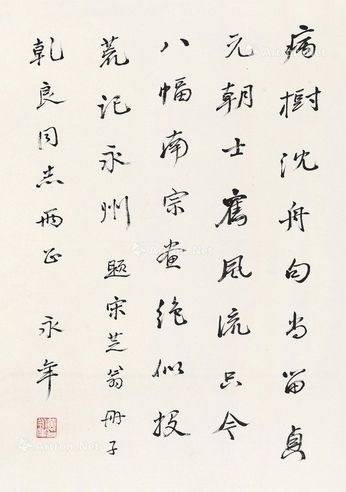 病樹沈舟句尚留貞
元朝士舊風流只今
八幅南宗畫絶似投
荒記永州 題宋芝翁冊子
乾良同志兩正 永年
Artron.Net